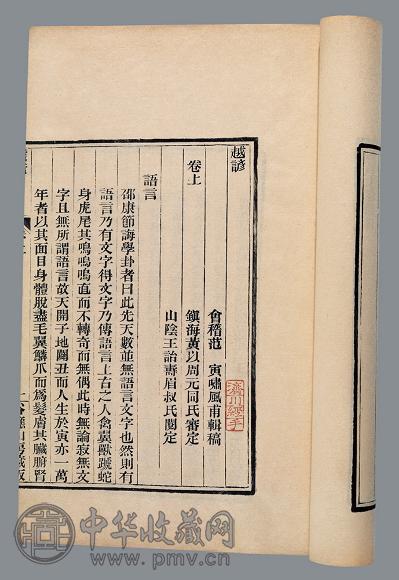 越諺
卷上
會稽范 寅嘯風甫輯稿
鎮海黃以周元同氏審定
山陰王詒壽眉叔氏閱定
濟川經手
語言
邵康節誨學卦者曰此先天數並無語言文字也然則有
語言乃有文字得文字乃傳語言上古之人禽翼獸蹏蛇
身虎尾其鳴嗚嗚直而不轉奇而無偶此時無論寂無文
字且無所謂語言故天開子地闢丑而人生於寅亦一萬
年者以其面目身體脫盡毛翼鱗爪而為髮膚其臟腑腎
中华收藏网
www.pmv.cn